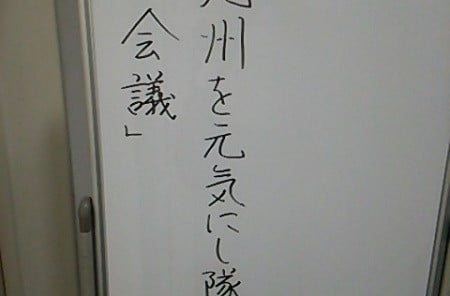 九州を元気にし隊
会議」